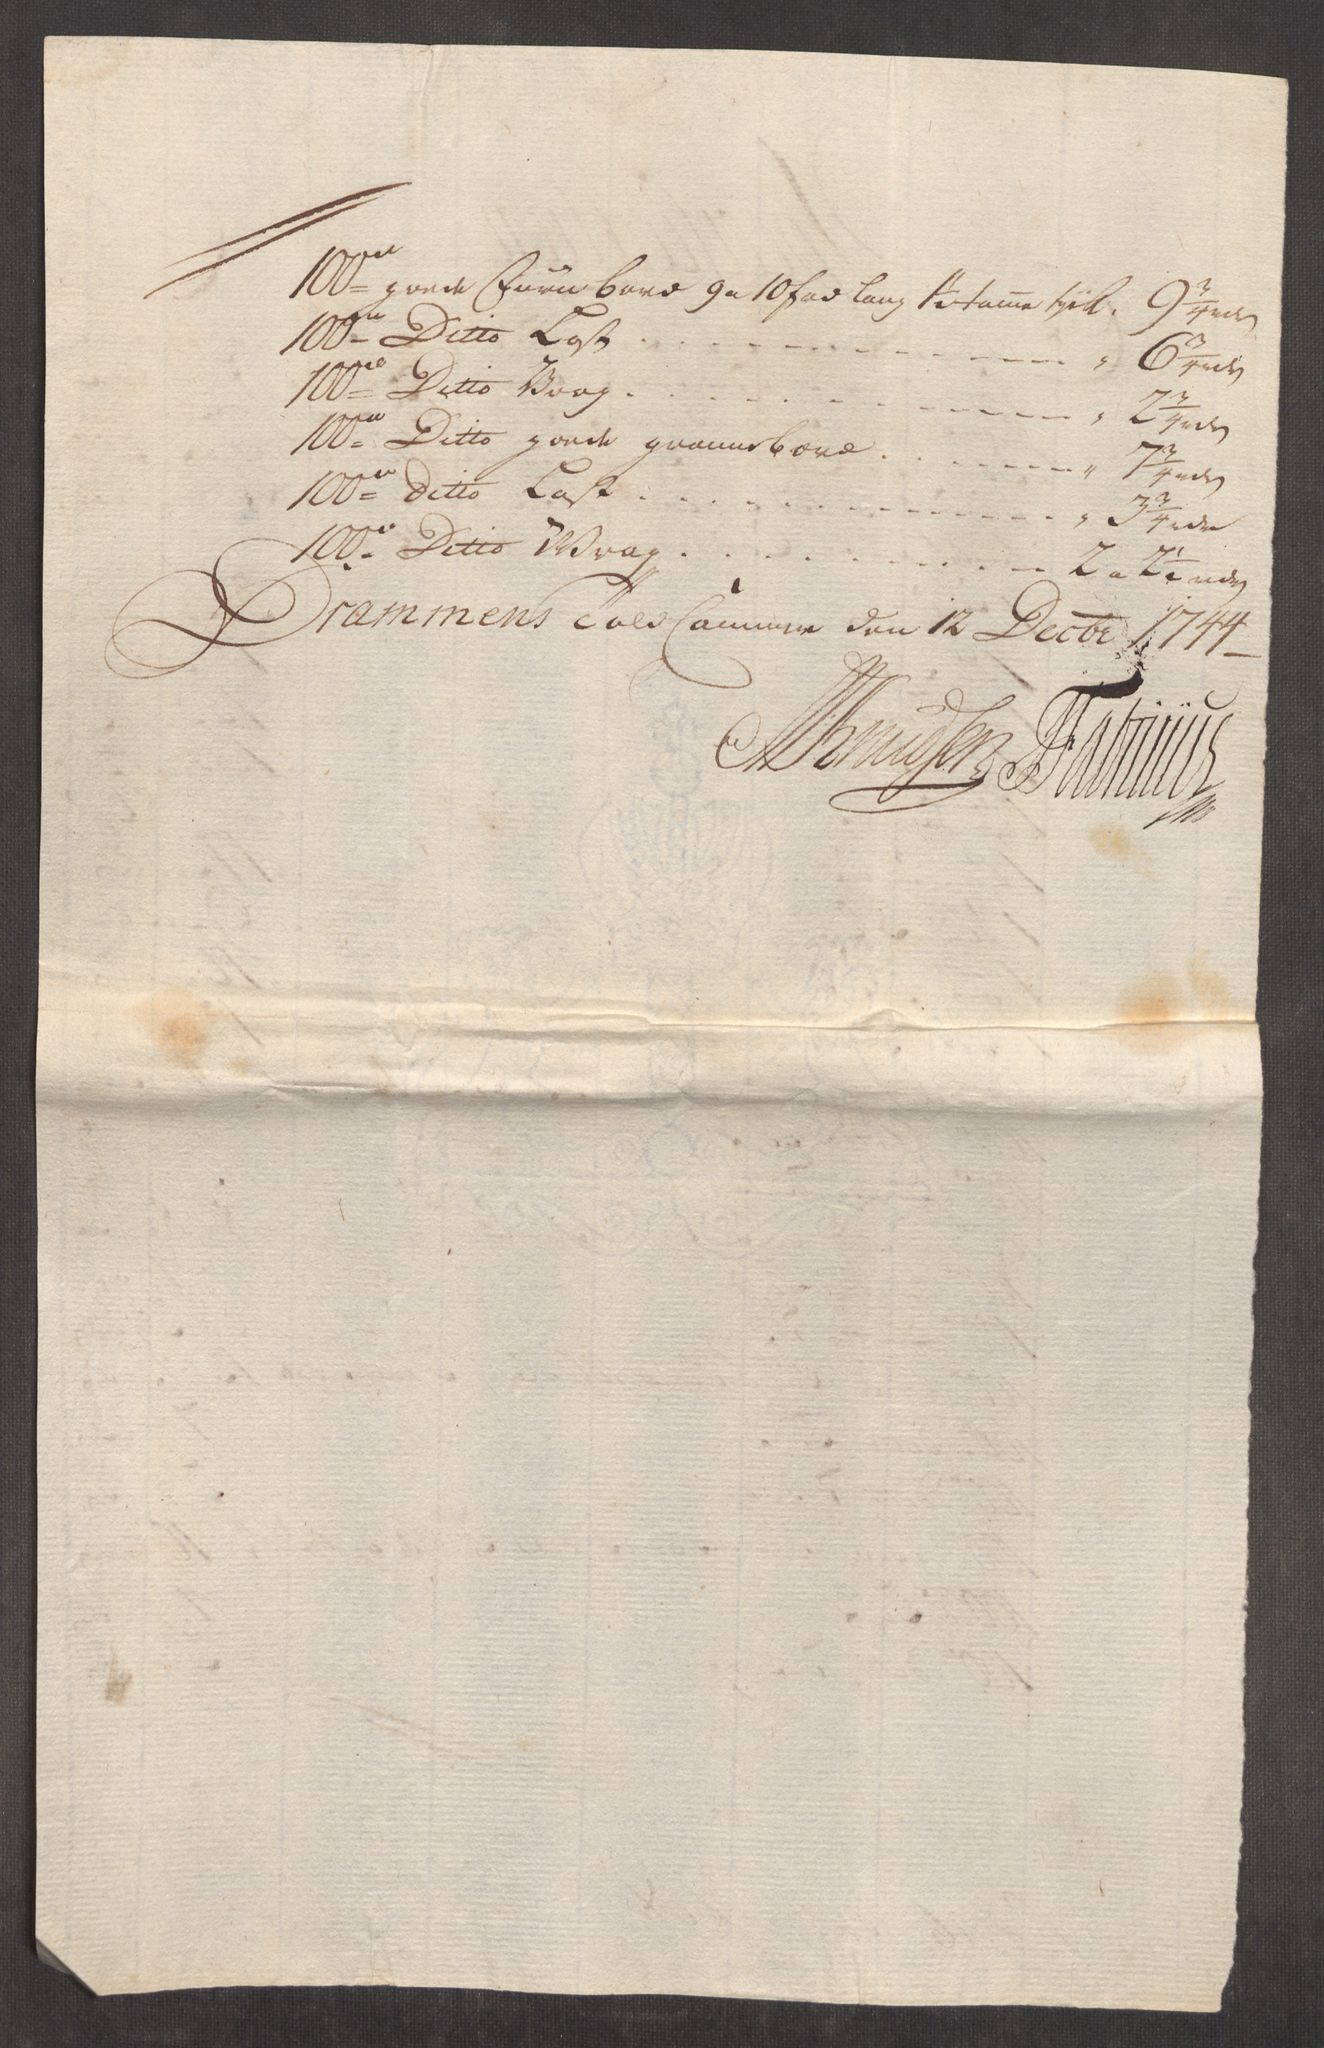 100de goede Furu bord 9 a 10 fod lang tomme tyk. 9 3/4 rdr
100de Ditto Last - - - " 6 3/4 rdr
100de Ditto Vrag - - - " 2 3/4 rdr
100de Ditto goede granne bord - - - " 7 3/4 rdr
100de Ditto Last - - - " 3 3/4 rdr
100de Ditto Wrag - - - 2 a 2 1/2 rdr
Drammens Told Cammer den 12 Decbr 1744
Knudsen